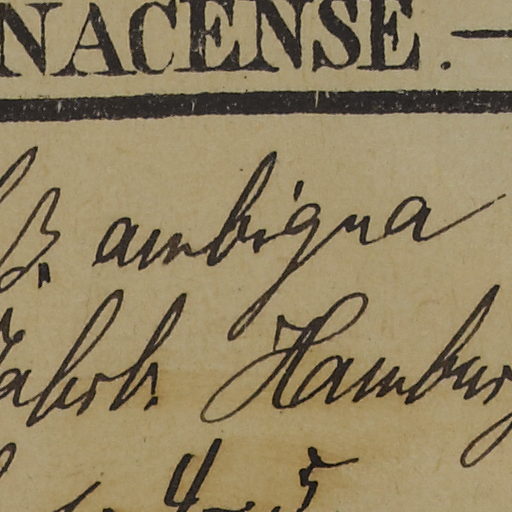 NACENSE. —
β. ambigua
Jahrb. Hamburg
4 5